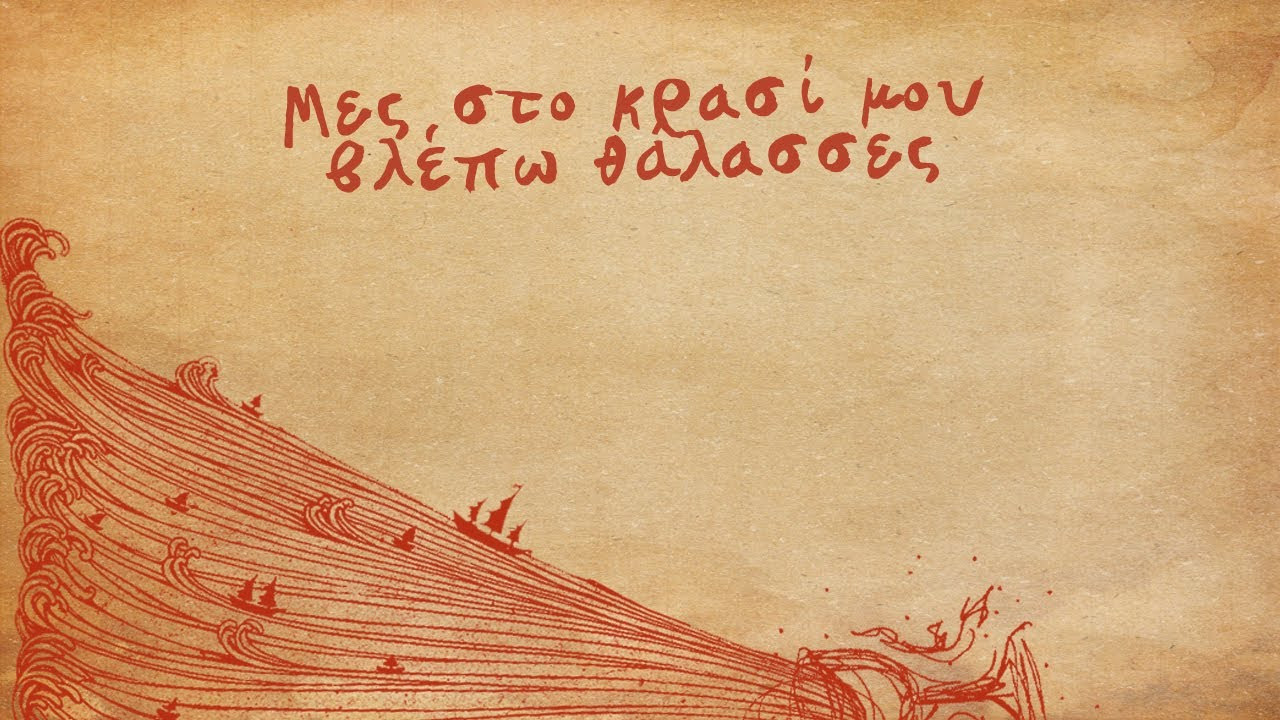 Μες στο κρασί μου
βλέπω θάλασσες